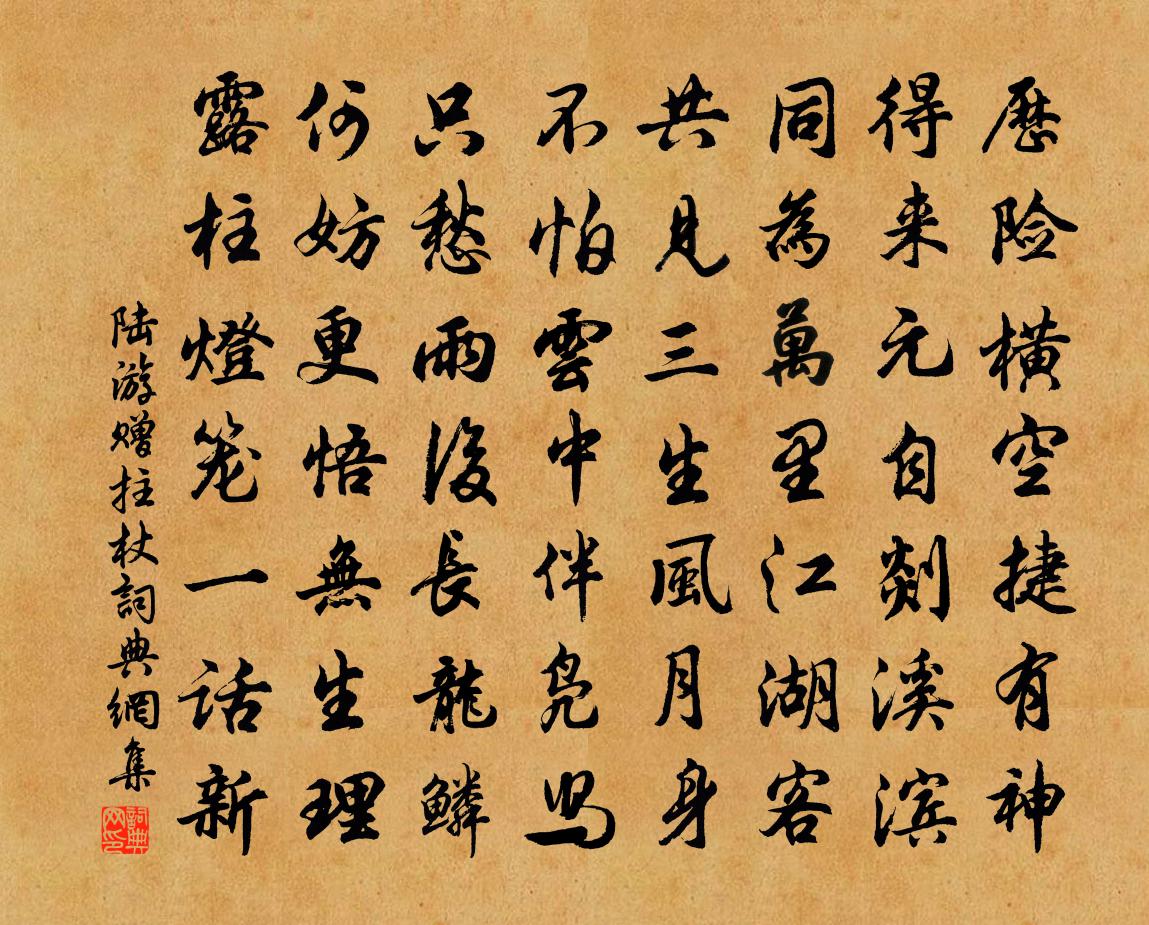 歷险橫空捷有神
得来元自剡溪滨
同為萬里江湖客
共見三生風月身
不怕雲中伴凫舄
只愁雨後長龍鱗
何妨更悟無生理
露柱燈笼一话新
陆游赠拄杖詞典網集
詞典网印